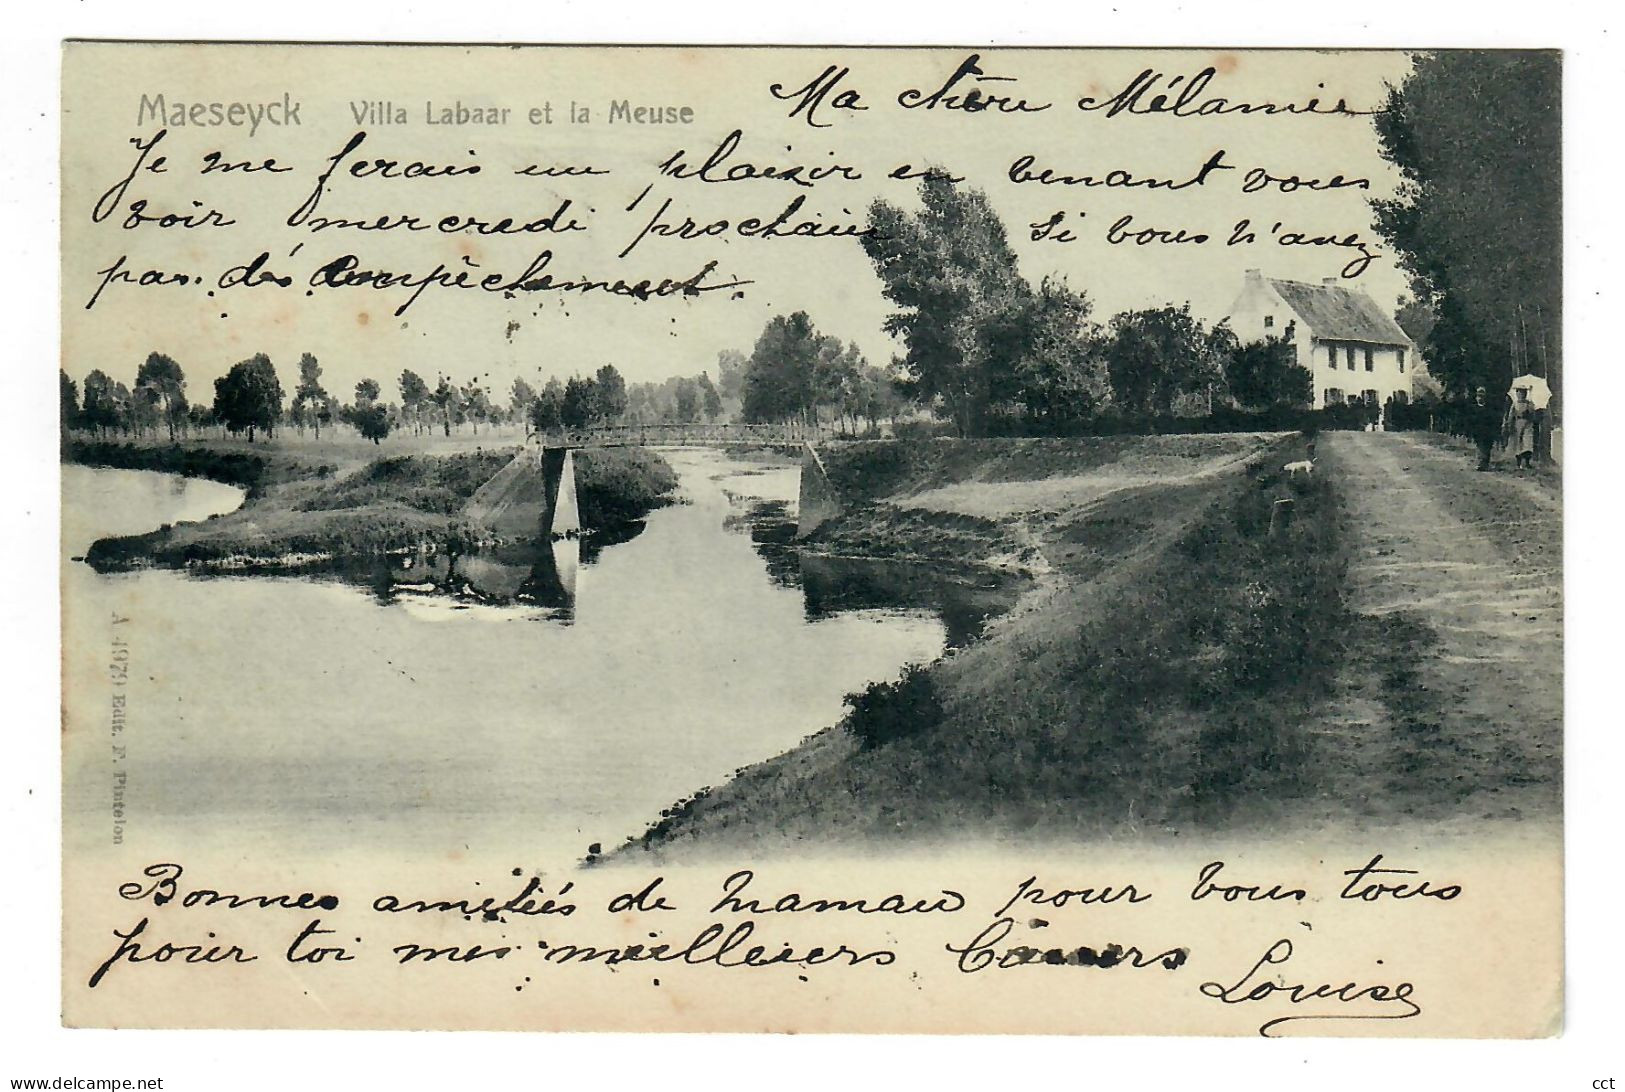 Ma chère Mélamie
Maeseyck Villa Labaar et la Meuse
Je me ferais un plaisir en venant vous
voir mercredi prochain Si vous n'avez
pas. dés empêchement.
A 4979 Edit. F. Pintelon
Bonnes amitiés de maman pour vous tous
pour toi mes meilleurs
Louise
www.delcampe.net
cct